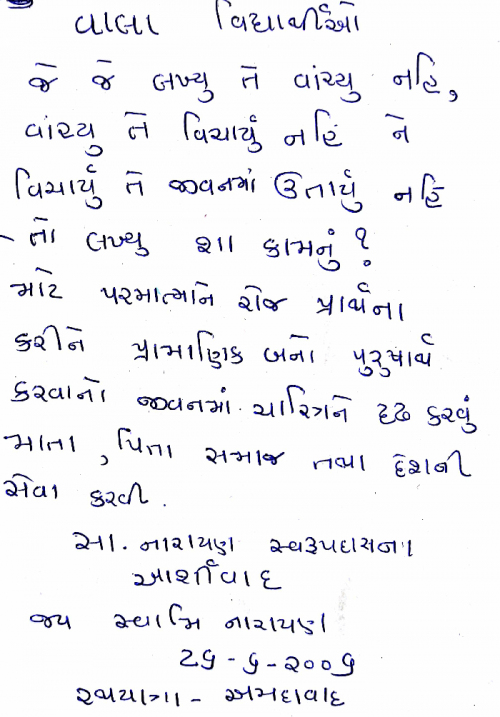 વાલા વિદ્યાર્થીઓ
જે જે લખ્યુ તે વાંચ્યુ નહિ,
વાંચ્યુ તે વિચાર્યું નહિં ને
વિચાર્યુ તે જીવનમાં ઉતાર્યુ નહિ
તો લખ્યુ શા કામનું ?
માટે પરમાત્માને રોજ પ્રાર્થના
કરીને પ્રામાણિક બનો પુરુષાર્થ
કરવાનો જીવનમાં ચારિત્રને દ્રઢ કરવું
માતા, પિતા સમાજ તથા દેશની
સેવા કરવી.
સા. નારાયણ સ્વરૂપદાસના
આર્શીવાદ
જય સ્વામિ નારાયણ
૨૬-૬-૨૦૦૬
રથયાત્રા - અમદાવાદ